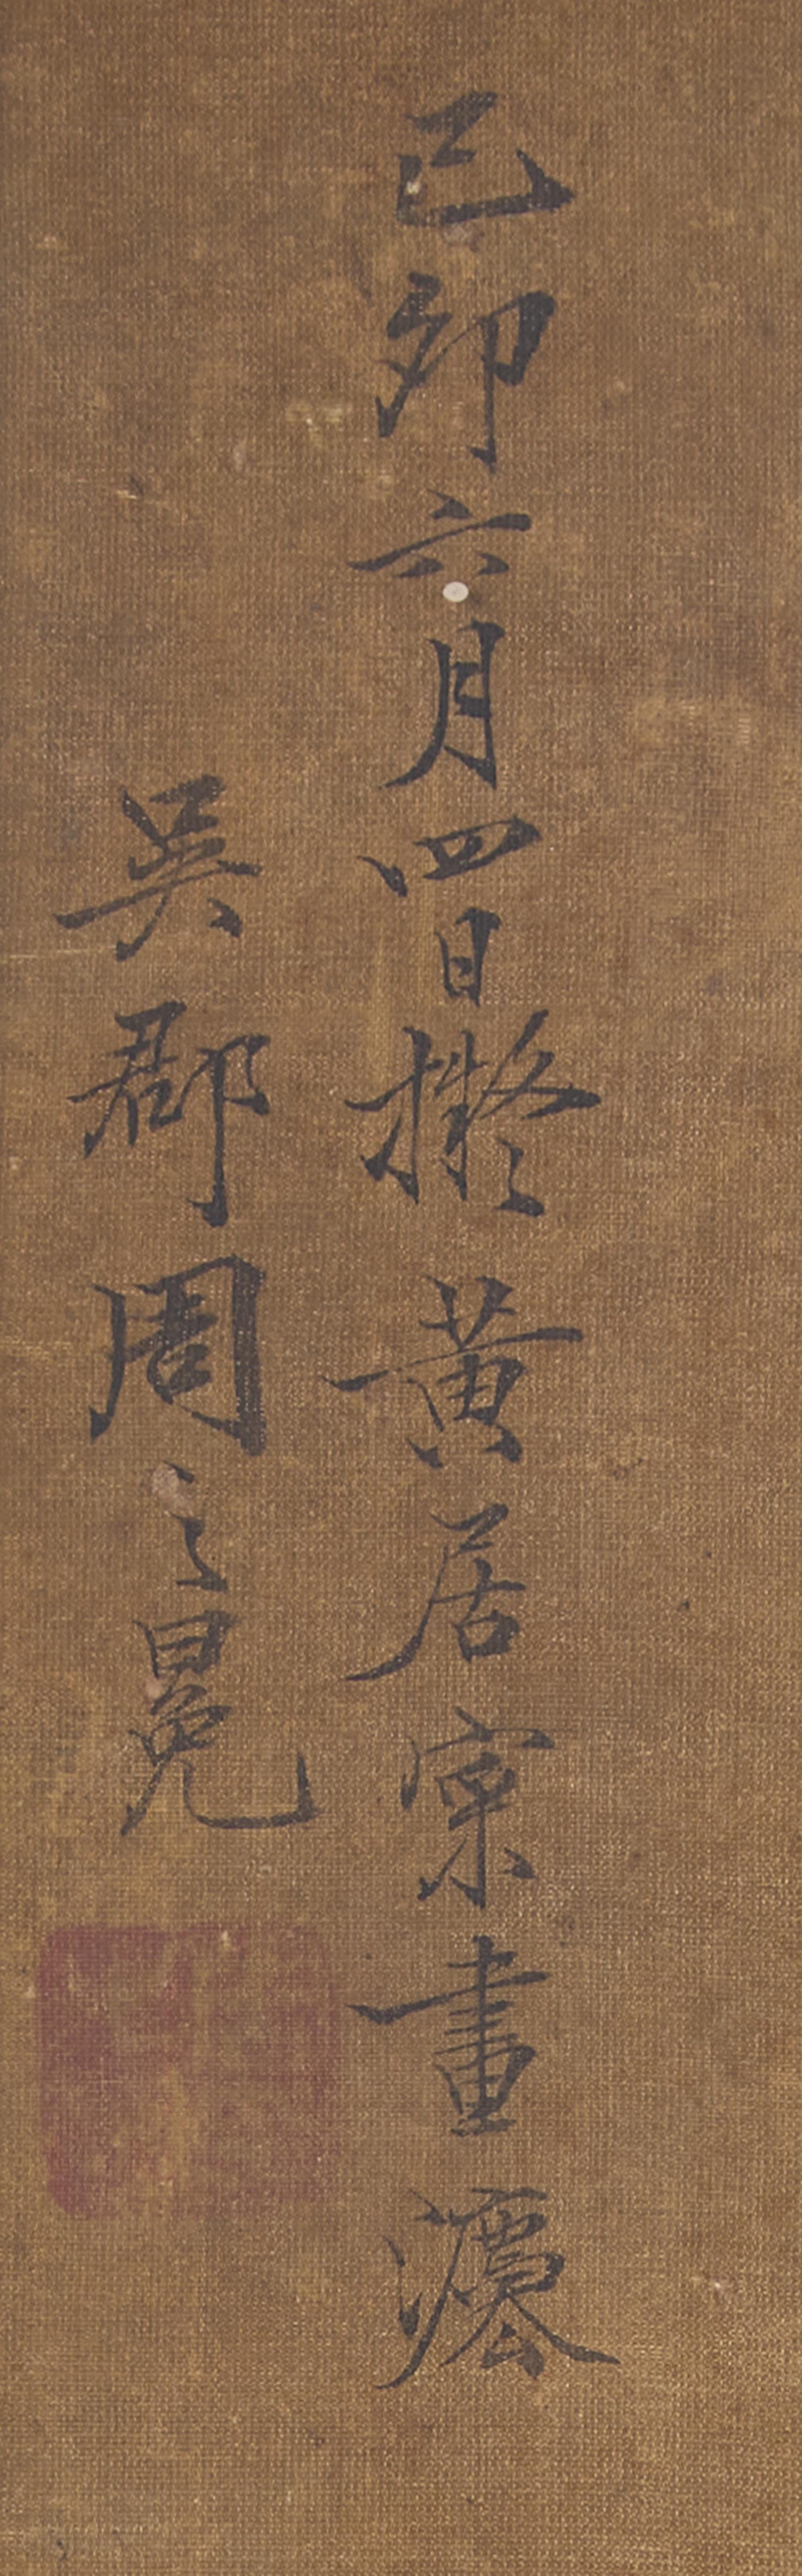 己卯六月四日擬黄居寀畫灋
吳郡周之冕